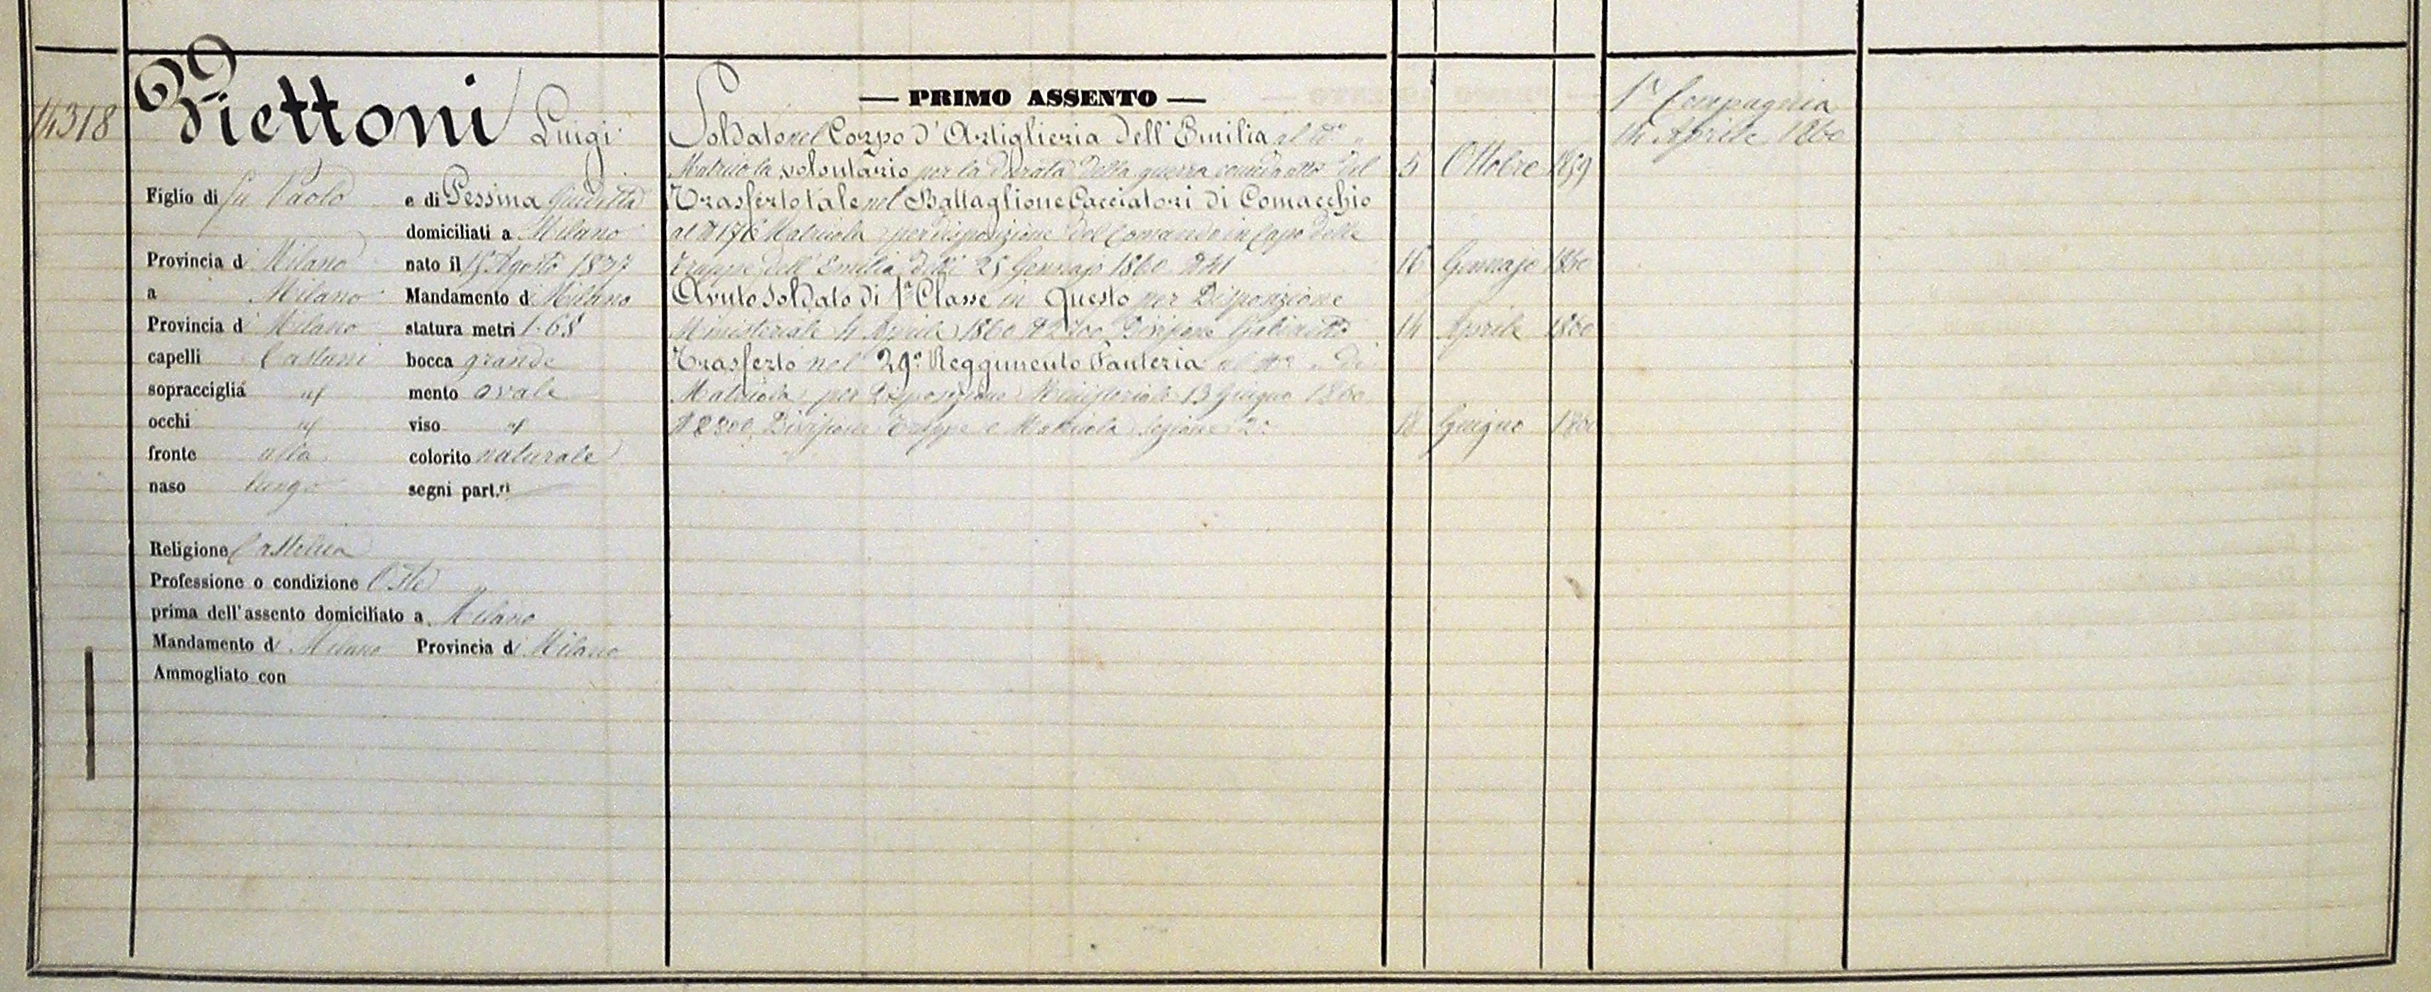 14318
Piettoni Luigi
Figlio di fu Paolo e di Pessina Giuditta
domiciliati a Milano
Provincia di Milano nato il 15 Agosto 1837
a Milano Mandamento di Milano
Provincia di Milano statura metri 1.68
capelli Castani bocca grande
sopracciglia id mento ovale
occhi id viso id
fronte alta colorito naturale
naso lungo segni part.ri
Religione Cattolica
Professione o condizione Oste
prima dell'assento domiciliato a Milano
Mandamento di Milano Provincia di Milano
Ammogliato con
— PRIMO ASSENTO —
Soldato nel Corpo d'Artiglieria dell'Emilia al N°
Matricola volontario per la durata della guerra 5 Ottobre 1859
Trasferto tale nel Battaglione Cacciatori di Comacchio
al N 1716 Matricola per disposizione del Comando in Capo delle
Truppe dell'Emilia delli 25 Gennajo 1860 N 41 16 Gennajo 1860
Avuto Soldato di 1ª Classe in questo per Disposizione
Ministeriale 4 Aprile 1860 N 2200 Divisione Gabinetto 14 Aprile 1860
Trasferto nel 29° Reggimento Fanteria al N° di
Matricola per Disposizione Ministeriale 13 Giugno 1860
Divisione Truppe e Matricola Sezione 2ª 18 Giugno 1860
1ª Compagnia
14 Aprile 1860